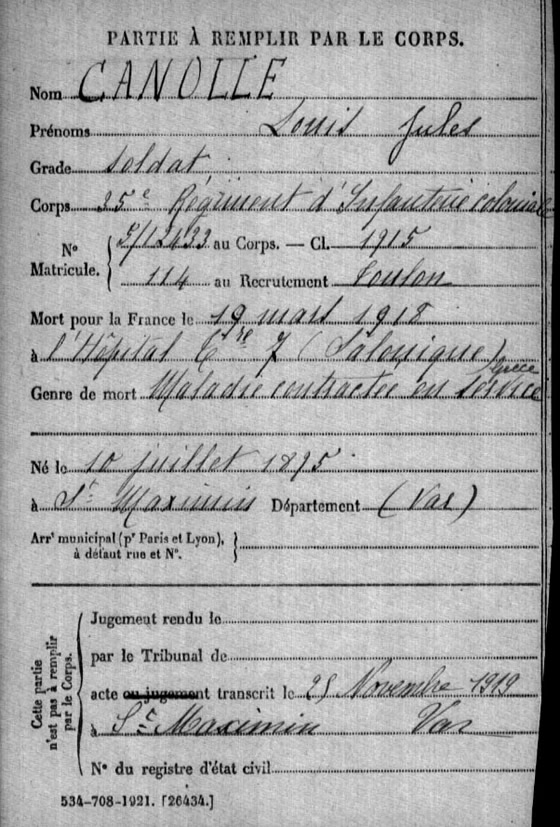 PARTIE À REMPLIR PAR LE CORPS.
Nom CANOLLE
Prénoms Louis Jules
Grade soldat
Corps 35e Régiment d'Infanterie coloniale
N° Matricule. { au Corps. — Cl. 1915
114 au Recrutement Toulon
Mort pour la France le 19 mars 1918
à l'Hôpital Cre 7 (Salonique) Grèce
Genre de mort Maladie contractée en service
Né le 10 juillet 1895
à St Maximin Département (Var)
Arrt municipal (pr Paris et Lyon), à défaut rue et N°. }
Cette partie n'est pas à remplir par le Corps. {
Jugement rendu le
par le Tribunal de
acte ou jugement transcrit le 25 Novembre 1919
à St Maximin Var
N° du registre d'état civil
534-708-1921. [26434.]